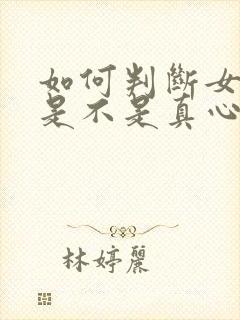 如何判斷女
是不是真心
林婷麗